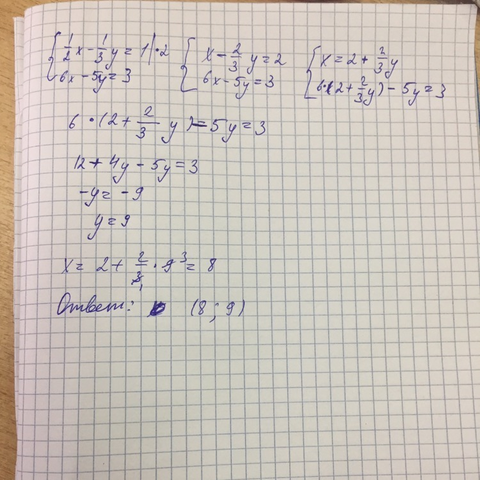 { 1/2 x - 1/3 y = 1 | · 2 { x - 2/3 y = 2 { x = 2 + 2/3 y
6x - 5y = 3 6x - 5y = 3 6·(2 + 2/3 y) - 5y = 3
6 · (2 + 2/3 y) - 5y = 3
12 + 4y - 5y = 3
-y = -9
y = 9
x = 2 + 2/3 1 · 9 3 = 8
Ответ: (8 ; 9)